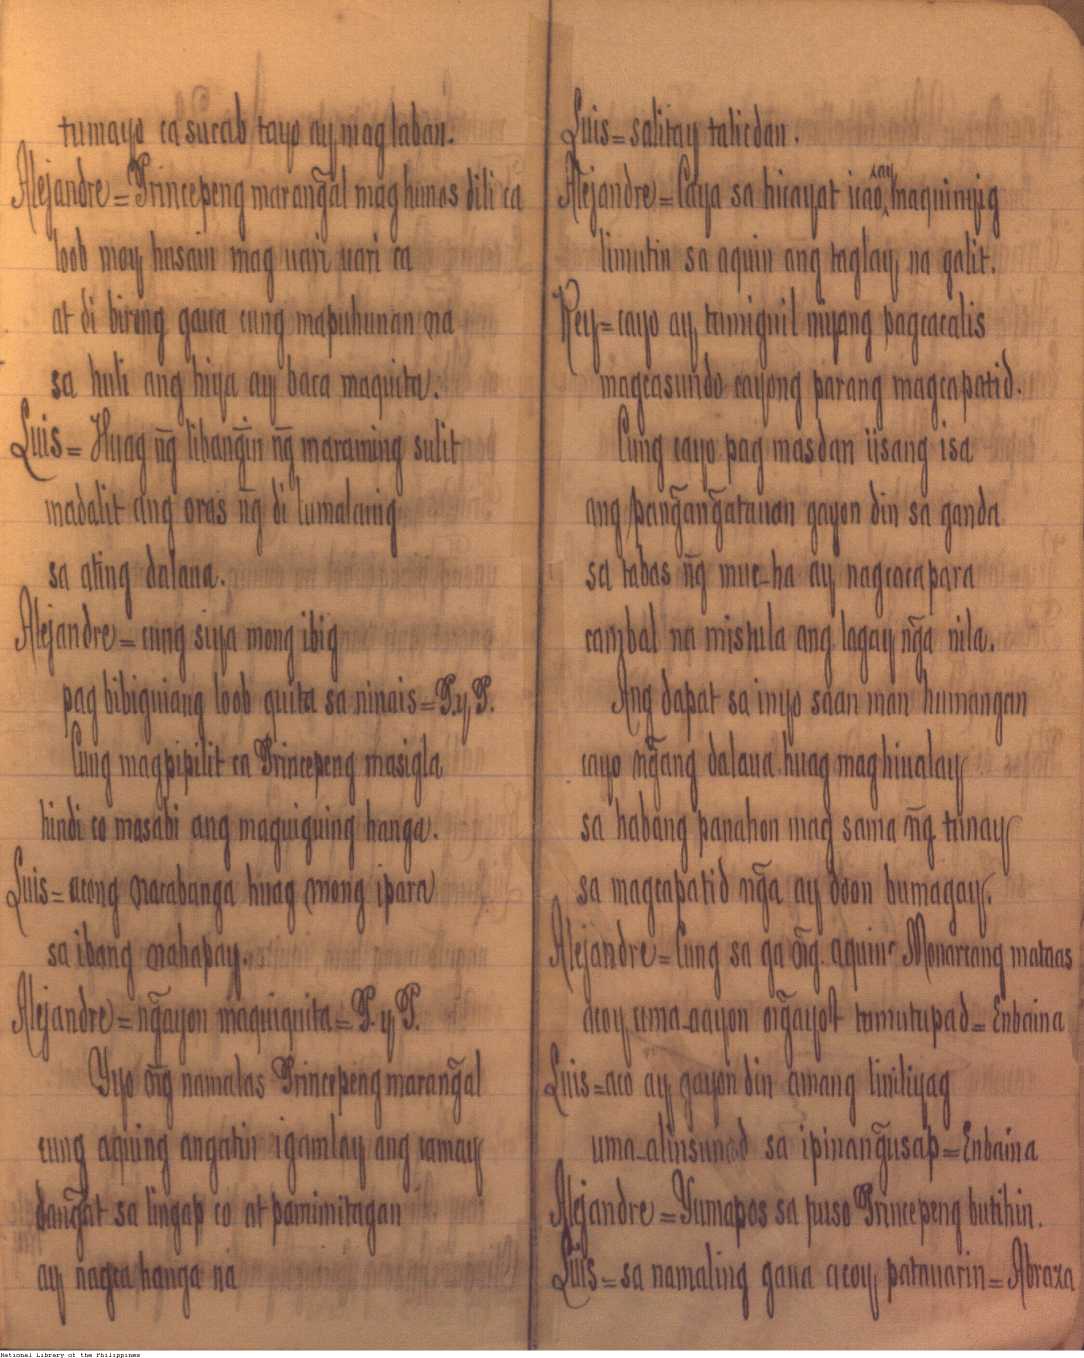 tumayo ca sucab tayo ay maglaban.
Alejandre = Princepeng maran͠gal mag hunos dili ca
loob moy husain mag uari uari ca
at di birong gaua cung mapuhunan na
sa huli ang hiya ay baca maquita.
Luis = Huag n͠g liban͠gin n͠g maraming sulit
madalit ang oras n͠g di lumalaing
sa ating dalaua.
Alejandre = cung siya mong ibig
pag bibiguiang loob quita sa ninais = P. y P.
Cung magpipilit ca Princepeng masigla
hindi co masabi ang maguiguing hanga.
Luis = acong nacabanga huag mong ipara
sa ibang nahapay.
Alejandre = n͠gayon maquiquita = P. y P.
Yyo n͠g namalas Princepeng maran͠gal
cung aquing angatin igamlay ang camay
dan͠gat sa lingap co at pamimitagan
ay nagca hanga na
Luis = salitay tahicdan.
Alejandre = Caya sa hicayat icao, ay maquiniyig
limutin sa aquin ang taglay na galit.
Rey = cayo ay tumiguil niyong pagcacalis
magcasundo cayong parang magcapatid.
Cung cayo pag masdan iisang isa
ang pan͠gan͠gatauan gayon din sa ganda
sa tabas n͠g muc-ha ay nagcacapara
cambal na mistula ang lagay n͠ga nila.
Ang dapat sa inyo saan man humangan
cayo n͠gang dalaua huag maghiualay
sa habang panahon mag sama n͠g tunay
sa magcapatid n͠ga ay doon bumagay.
Alejandre = Cung sa ga n͠g. aquin Monarcang mataas
acoy uma-aayon tumutupad = Enbaina
Luis = aco ay gayon din amang liniliyag
uma-alinsunod sa ipinan͠gusap = Enbaina
Alejandre = Yumapos sa puso Princepeng butihin.
Luis = sa namaling gaua acoy patauarin = Abraza
National Library of the Philippines